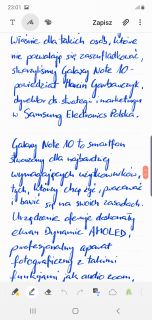 23:01
Zapisz
Właśnie dla takich osób, które
nie pozwalają się zaszufladkować,
stworzyliśmy Galaxy Note 10 -
powiedział Marcin Garbarczyk,
dyrektor ds. strategii i marketingu
w Samsung Electronics Polska.
Galaxy Note 10 to smartfon
stworzony dla najbardziej
wymagających użytkowników,
tych, którzy chcą żyć, pracować
i bawić się na swoich zasadach.
Urządzenie oferuje doskonały
ekran Dynamic AMOLED,
profesjonalny aparat
fotograficzny z takimi
funkcjami jak audio zoom,